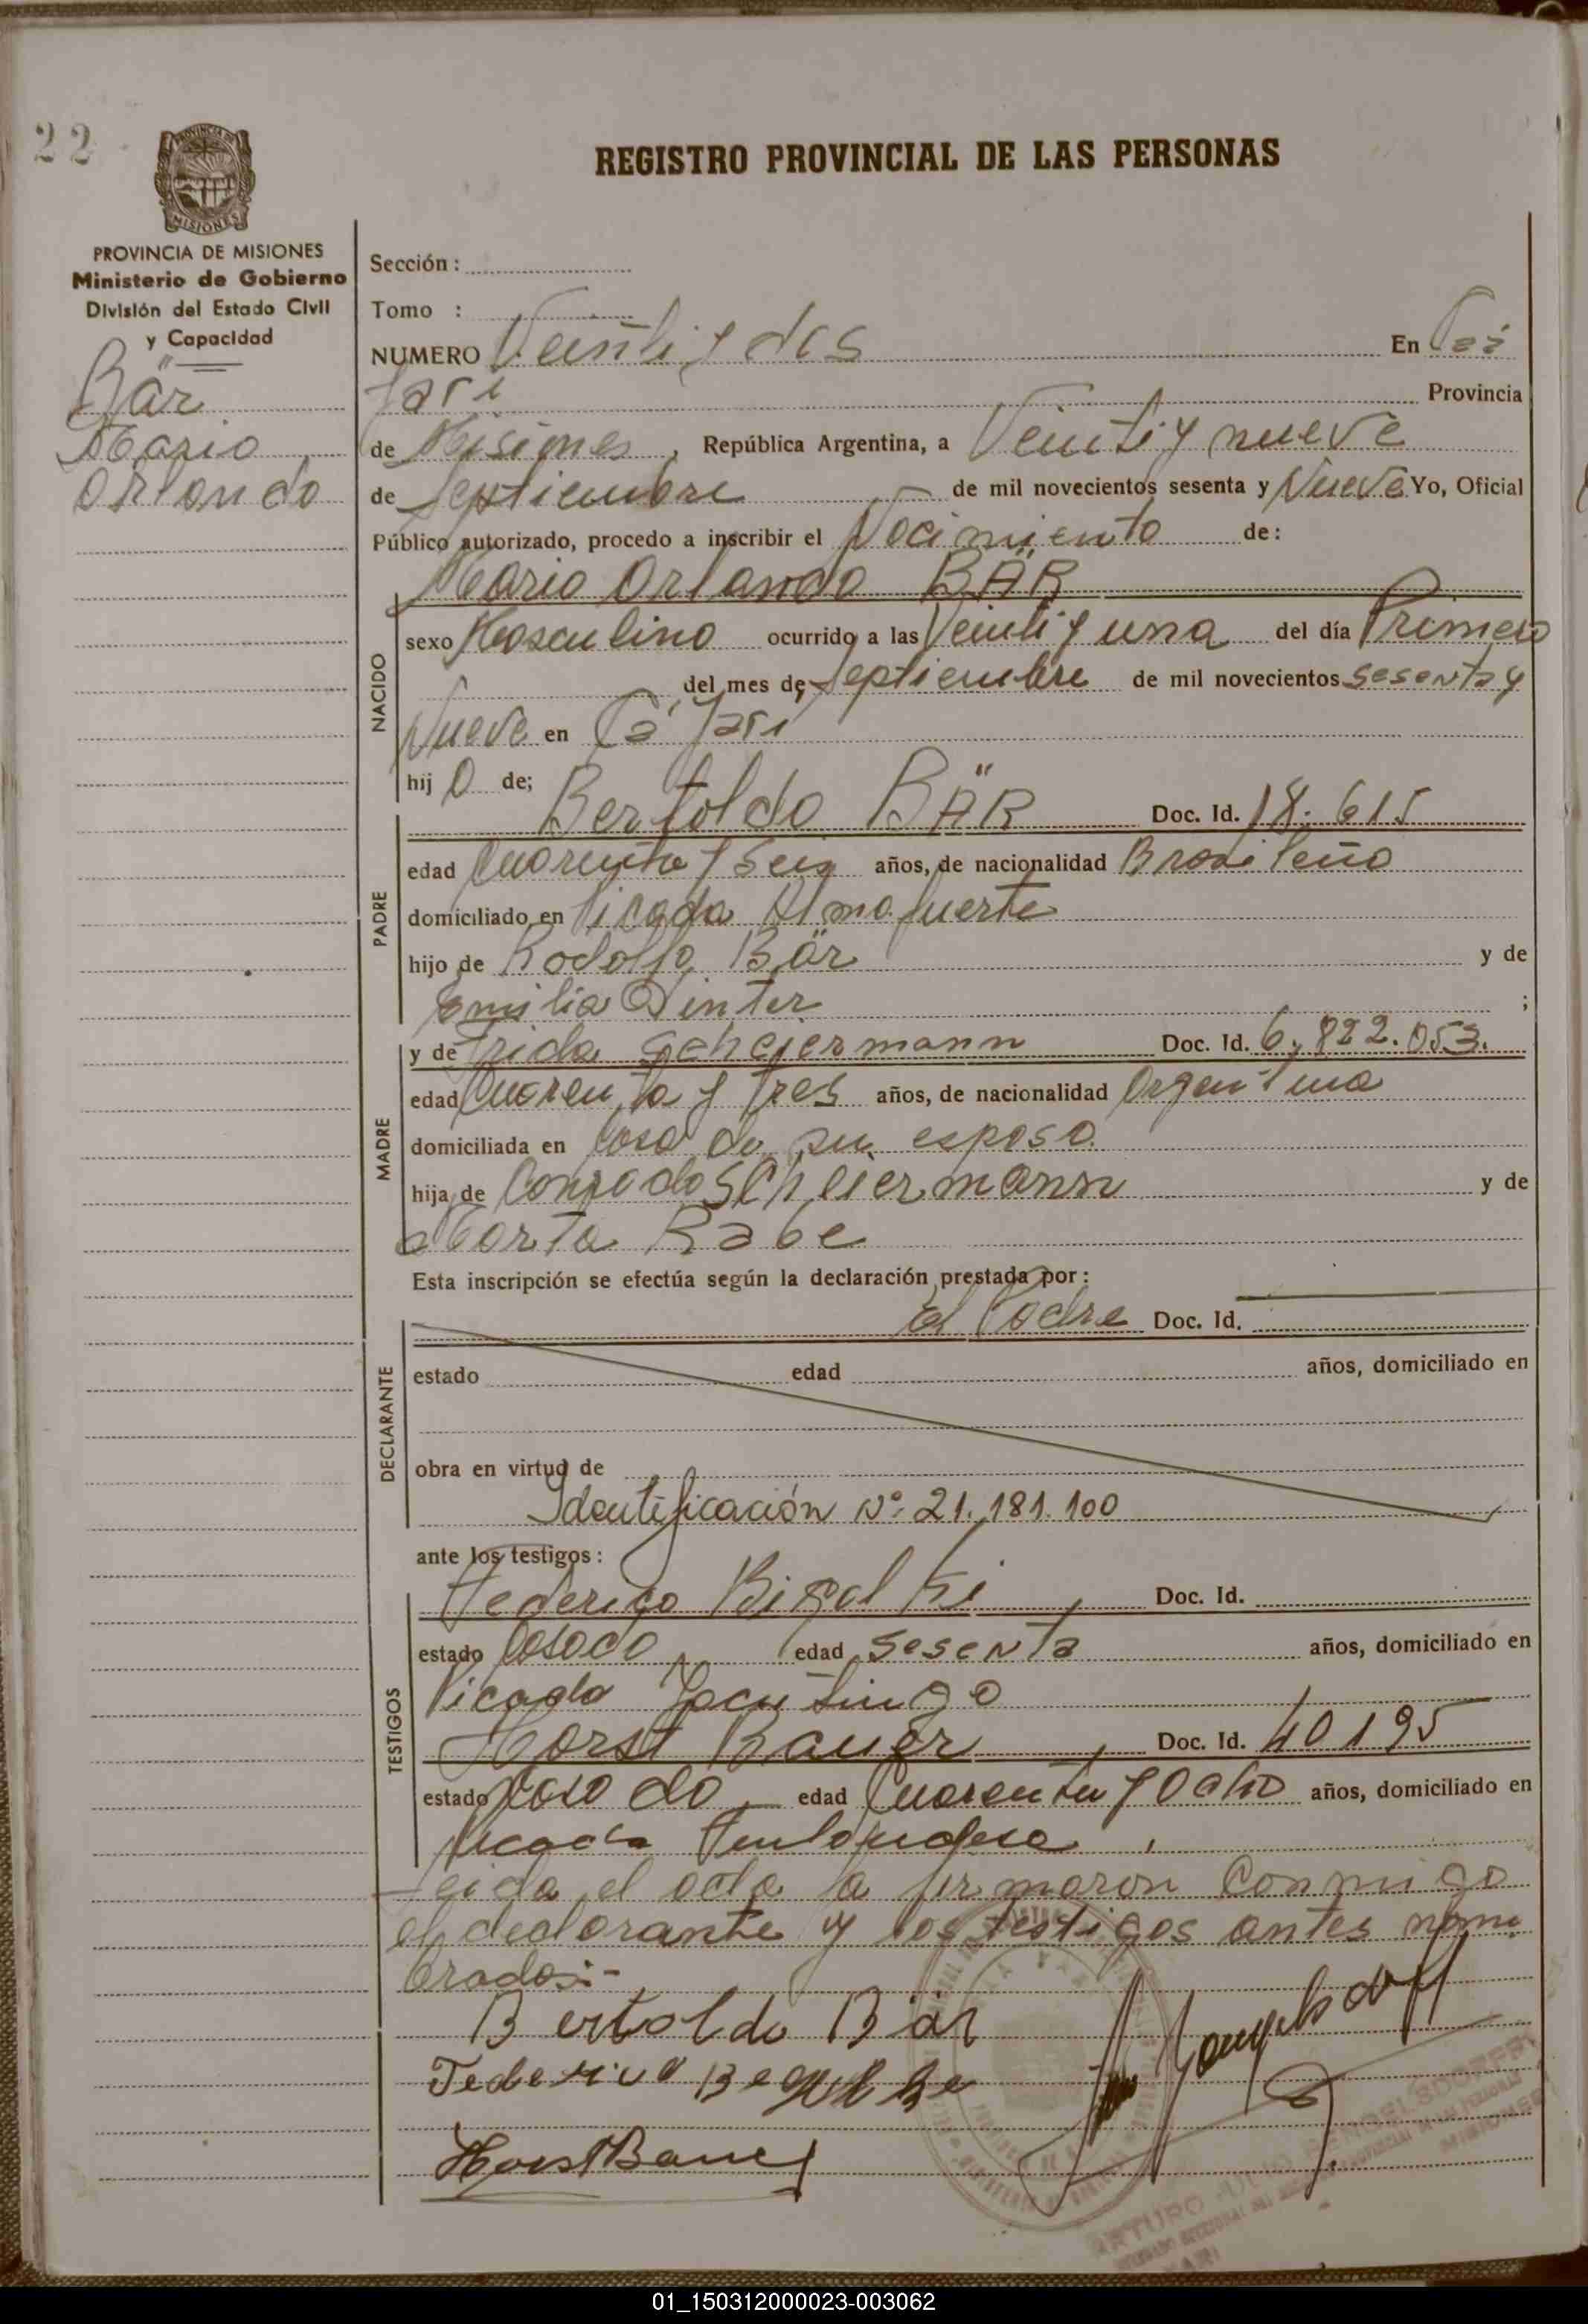 22
PROVINCIA DE
MISIONES
REGISTRO PROVINCIAL DE LAS PERSONAS
PROVINCIA DE MISIONES
Ministerio de Gobierno
División del Estado Civil
y Capacidad
Bär
Mario
Orlando
Sección :
Tomo :
NUMERO Veinti y dos En
Jari Provincia
de Misiones, República Argentina, a Veinti y nueve
de Septiembre de mil novecientos sesenta y Nueve Yo, Oficial
Público autorizado, procedo a inscribir el Nacimiento de:
Mario Orlando BÄR
NACIDO
sexo Masculino ocurrido a las Veinti y una del día Primero
del mes de Septiembre de mil novecientos sesenta y
Nueve en Ca Jari
hij o de;
Bertoldo BÄR Doc. Id. 18.615
PADRE
edad Cuarenta y Seis años, de nacionalidad Brasileña
domiciliado en Picada Almafuerte
hijo de Rodolfo Bär y de
Emilia Dinter ;
y de Frida Scheiermann Doc. Id. 6,822.053.
MADRE
edad Cuarenta y Tres años, de nacionalidad Argentina
domiciliada en Casa de su esposo.
hija de Conrado Scheiermann y de
Marta Rabe
Esta inscripción se efectúa según la declaración prestada por :
El Padre Doc. Id.
DECLARANTE
estado edad años, domiciliado en
obra en virtud de
Identificación Nº. 21.181.100
ante los testigos :
Federico Doc. Id.
TESTIGOS
estado Casado edad Sesenta años, domiciliado en
Picada Jacutinga
Horst Bauer Doc. Id. 40195
estado Casado edad Cuarenta y Ocho años, domiciliado en
Picada Finlandesa
Leida el acta la firmaron conmigo
el declarante y los testigos antes nom-
brados:-
Bertoldo Bär
Federico
Horst Bauer
01_150312000023-003062